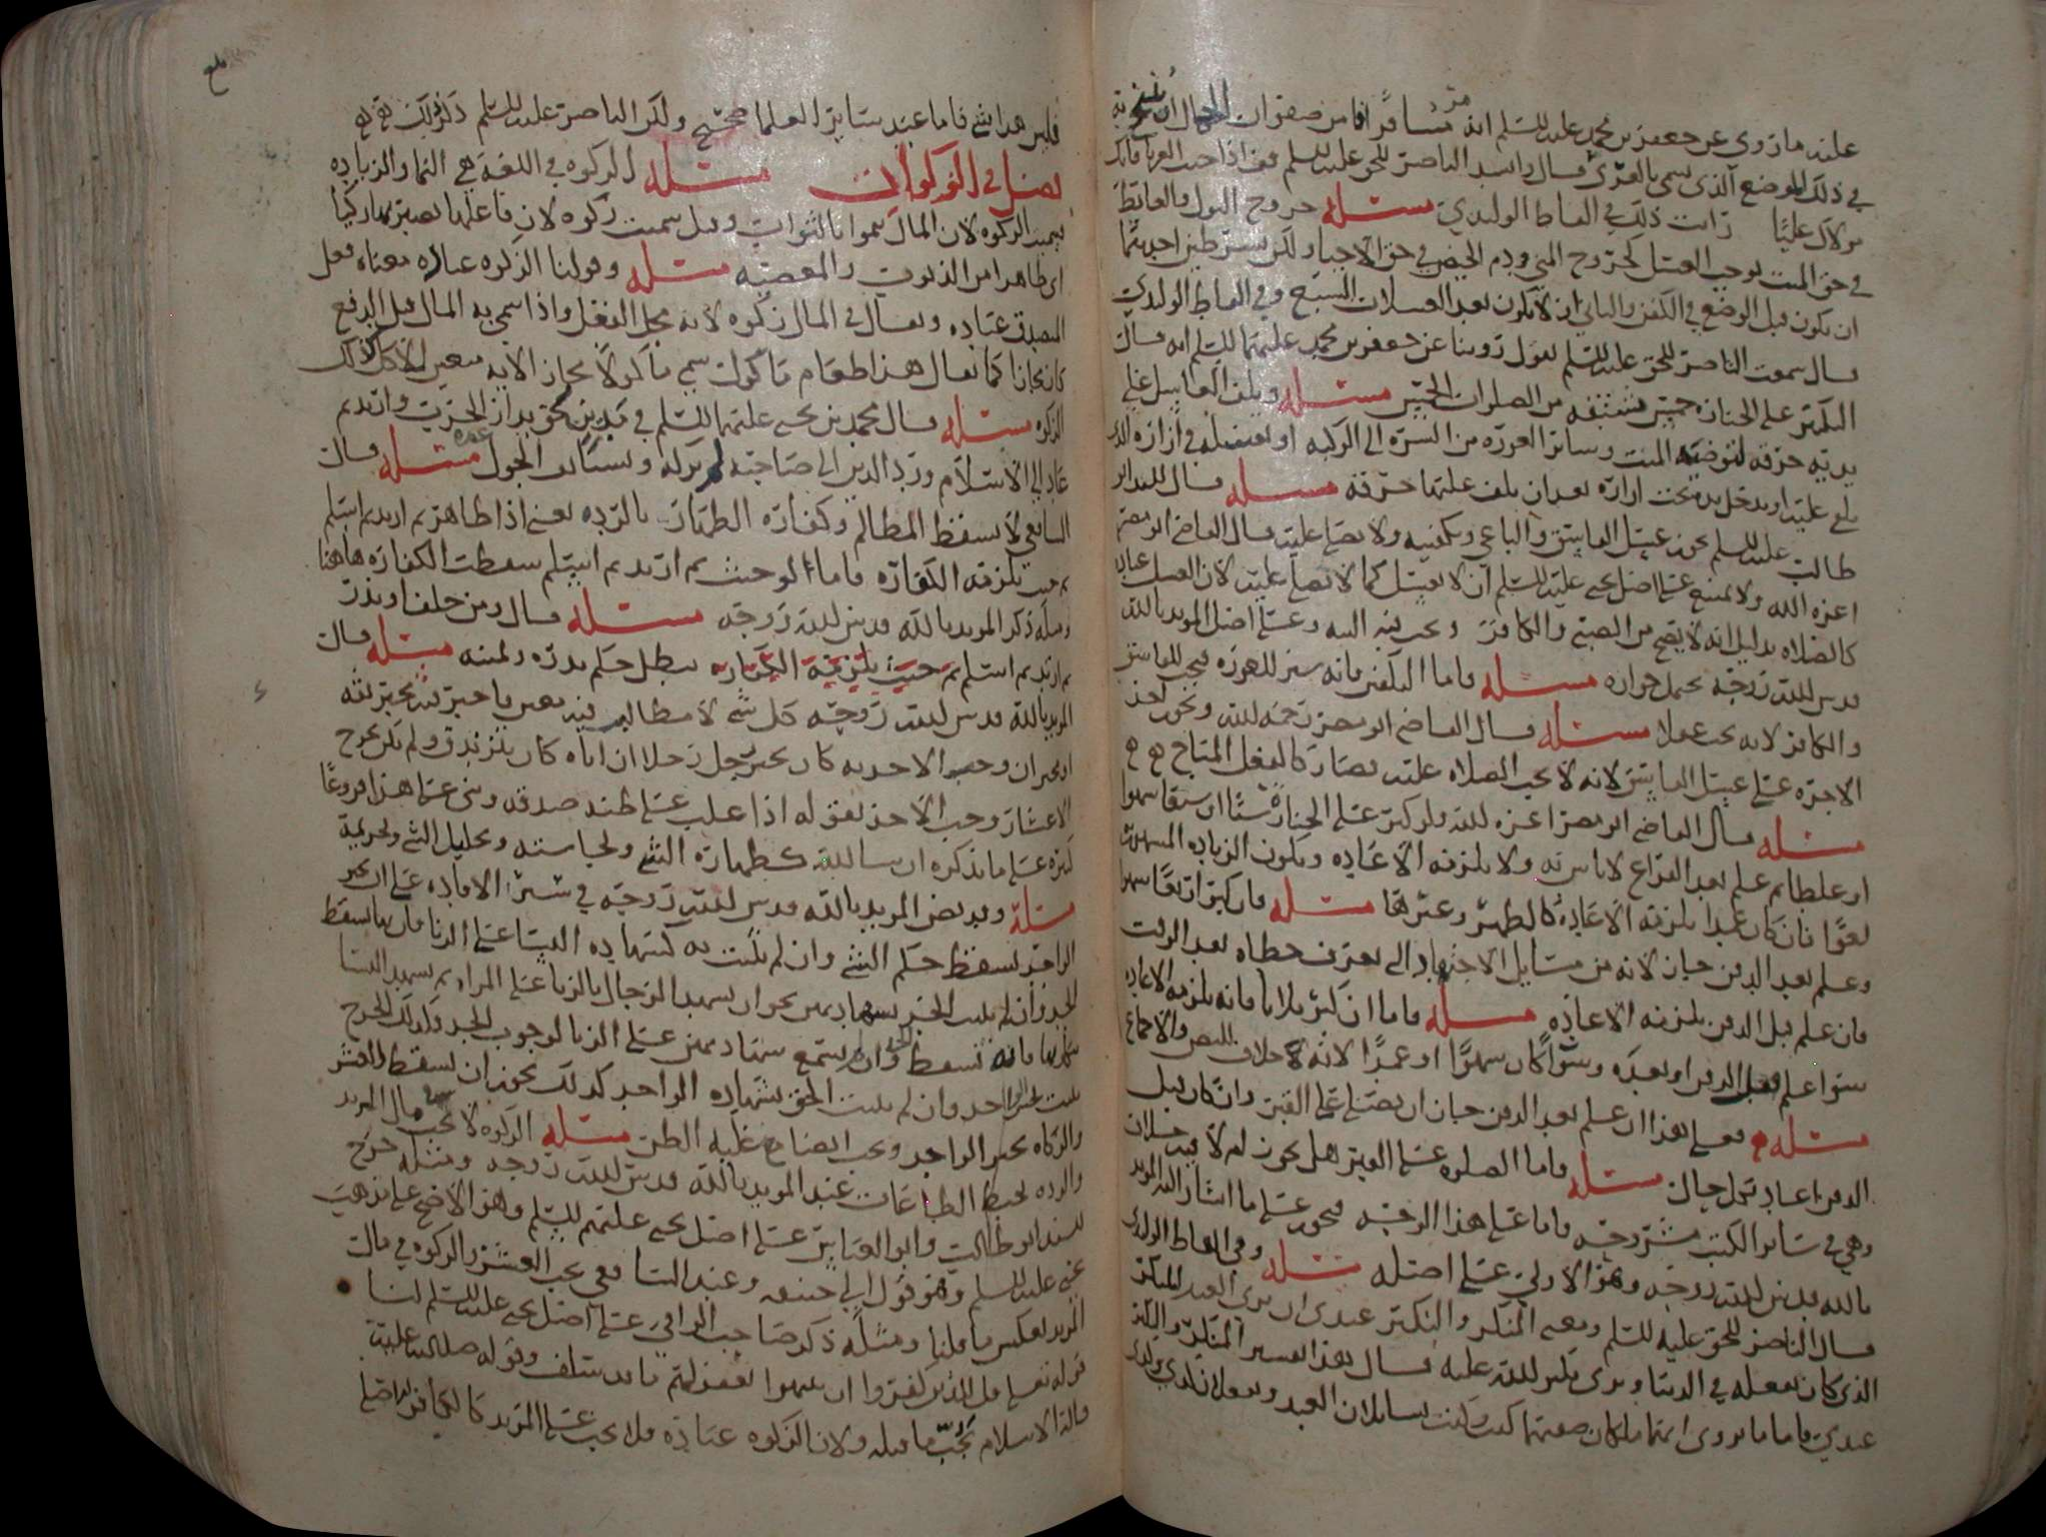 عليه ما روي عن جعفر بن محمد عليه السلم انه مر مسافرا
في ذلك الموضع الذي يسمى بالغري قال والسيد الناصر للحق عليه السلم
مولاك عليا زانت ذلك في الفاظ الولیدي مسئله خروج البول والغائط
في حق الميت يوجب الغسل كخروج المني ودم الحيض في حق الاحيا ولكن بشرطين احدهما
ان يكون قبل الوضع في الكفن والثاني ان لا يكون بعد الغسلات السبع وفي الفاظ الوليدي
قال سمعت الناصر للحق عليه السلم يقول روينا عن جعفر بن محمد عليهما السلم انه قال
التكبير على الجنازة خمس مشتقه من الصلوات الخمس مسئله ويلف الغاسل على
يديه خرقه لتوضيه الميت وساتر العورة من السرة الى الركبه او يغسله في ازاره
عليه او يدخل يده تحت ازاره بعد ان يلف عليها خرقه مسئله قال السيد ابو
طالب عليه السلم يجوز غسل الفاسق والباغي وتكفينه ولا يصلى عليه قال القاضي ابو مضر
اعزه الله ولا يمتنع على اصل يحيى عليه السلم ان لا يغسل كما لا يصلى عليه لان الغسل عباده
كالصلاه بدليل انه لا يصح من الصبي والكافر ويجب فيه النيه وعلى اصل المويد بالله
قدس الله روحه يحتمل جوازه مسئله واما التكفين فانه ستر للعوره فيجب للفاسق
والكافر لانه يجب عقلا مسئله قال القاضي ابو مضر رحمه الله ويجوز اخذ
الاجره على غسل الفاسق لانه لا يجب الصلاه عليه فصار كالفعل المباح
مسئله قال القاضي ابو مضر اعزه الله ولو كبر على الجنازة ستا او سبعا سهوا
او غلطا ثم علم بعد الفراغ لا باس به ولا يلزمه الاعاده ويكون الزياده
لغوا فان كان عمدا يلزمه الاعاده كالظهر وغيرها مسئله فان كبر اربعا سهوا
وعلم بعد الدفن جاز لانه من مسايل الاجتهاد التي يعترف خطاه بعد الوقت
فان علم قبل الدفن يلزمه الاعاده مسئله فاما ان كبر ثلاثا فانه يلزمه الاعاده
سوا علم قبل الدفن او بعده وسوا كان سهوا او عمدا لانه خلاف النص والاجماع
مسئله فعلى هذا ان علم بعد الدفن جاز ان يصلى على القبر وان كان قبل
الدفن اعاد بكل حال مسئله فاما الصلوه على القبر هل يجوز ام لا فيه خلاف
وهي في ساير الكتب مشروحه فاما على هذا الوجه فيجوز على ما اشار اليه المويد
بالله قدس الله روحه وهو الاولى على اصله مسئله وفي الفاظ الوليدي
قال الناصر للحق عليه السلم ومعنى المنكر والنكير عندي ان يرى العبد المنكر
الذي كان يفعله في الدنيا ويرى نكير الله عليه قال هذا تفسير المنكر والنكير
عندي فاما ما يروى انهما ملكان صفتهما كيت وكيت يسالان العبد
فليس هذا بشي فاما عند ساير العلما صحيح ولكن الناصر عليه السلم ذكر ذلك
فصل في الزكوات مسئله الزكوه في اللغه هي النما والزياده
سميت الزكوه لان المال ينموا بالثواب وقيل سميت زكوه لان فاعلها يصير بها زكيا
اي طاهرا من الذنوب والمعصيه مسئله وقولنا الزكوه عباره معناه فعل
المصدق عباده ويقال في المال زكوه لانه محل الفعل واذا سمي به المال قبل الدفع
كان مجازا كما يقال هذا طعام ماكول سمي ماكولا مجازا لانه معرض للاكل كذلك
الزكوه مسئله قال محمد بن يحيى عليهما السلم في مدين لحق بدار الحرب وارتد ثم
عاد الى الاسلام ورد الدين الى صاحبه لم يزكه ويستانف الحول مسئله قال
الشافعي لا يسقط المظالم وكفاره الظهار بالرده يعني اذا ظاهر ثم ارتد ثم اسلم
ثم حنث يلزمه الكفاره فاما لو حنث ثم ارتد ثم اسلم سقطت الكفاره هاهنا
ومثله ذكر المويد بالله قدس الله روحه مسئله قال ومن حلف او نذر
ثم ارتد ثم اسلم ثم حنث يلزمه الكفاره يبطل حكم نذره ويمينه مسئله قال
المويد بالله قدس الله روحه كل شي لا مطالب فيه بعين فاخبر فيه مخبر ثقه
او مخبران وجب الاخذ به كان يخبر رجل رجلا ان اباه كان يلزمه ولم يكن يخرج
الاعشار وجب الاخذ بقوله اذا غلب على ظنه صدقه وبني على هذا فروعا
كثيره على ما نذكره ان شا الله كطهارة الشي ونجاسته وتحليل الشي وتحريمه
مسئله وقد نص المويد بالله قدس الله روحه في شرح الافاده على ان خبر
الواحد يسقط حكم الشي وان لم يثبت به كشهاده النسا على الزنا فان بها يسقط
الحد وان لم يثبت الحد بشهادتهن نحو ان يشهد الرجال بالزنا على المراه ثم يشهد النسا
فانه تسقط وان لم يسمع شهادتهن على الزنا لوجوب الحد وكذلك الجرح
يثبت بخبر الواحد وان لم يثبت الحق بشهاده الواحد كذلك يجوز ان يسقط العشر
والزكاه بخبر الواحد ويجب ايضا مع غلبه الظن مسئله الزكوه لا تجب في مال المرتد
والرده تحبط الطاعات عند المويد بالله قدس الله روحه ومثله خرج
السيد ابو طالب وابو العباس على اصل يحيى عليهم السلم وهو الاصح على مذهب
يحيى عليه السلم وهو قول ابي حنيفه وعند الشافعي يجب العشر والزكوه في مال
المرتد بعكس ما قلنا ومثله ذكر صاحب الوافي على اصل يحيى عليه السلم لنا
قوله تعالى قل للذين كفروا ان ينتهوا يغفر لهم ما قد سلف وقوله صلى الله عليه
واله الاسلام يجب ما قبله ولان الزكوه عباده فلا يجب على المرتد كالكافر